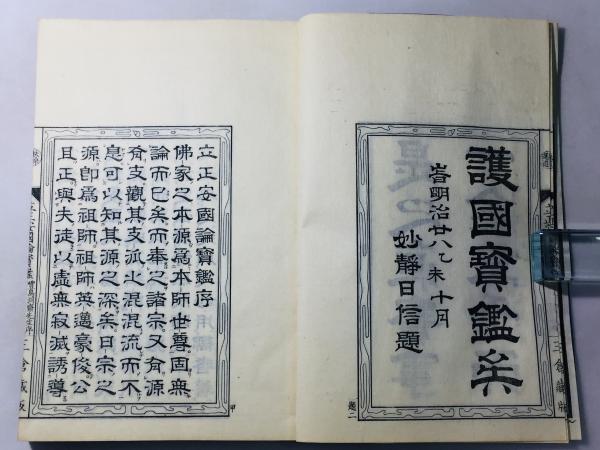 護國寶鑑矣
旹明治廿八乙未十月
妙靜日信題
題二
立正安國論寶鑑序
佛家之本源爲本師世尊固無
論而已矣而奉之諸宗又有源
有支觀其支派混混流而不
息可以知其源之深矣日宗之
源卽爲祖師祖師英邁豪俊公
且正與夫徒以虛無寂滅誘導